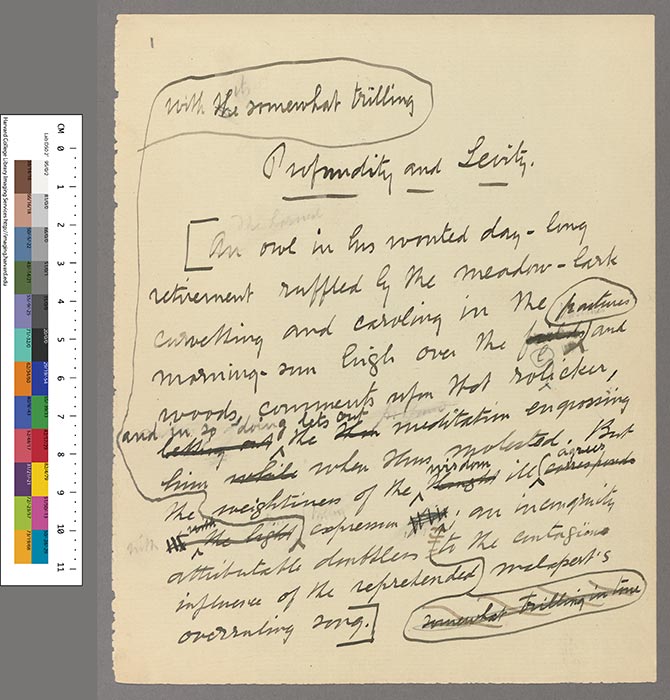 1
with the its somewhat trilling
Profundity and Levity.
The horned
[An owl in his wonted day-long
retirement ruffled by the meadow-lark
curvetting and caroling in the
pastures
morning-sun high over the fields and
woods, comments upon that rolicker,
(and in so doing lets out
letting out the meditation engrossing
him while when thus molested. But
the weightiness of the wisdom thought ill agrees corresponds
with with the light expression, an incongruity
attributable doubtless to the contagious
influence of the reprehended malapert's
overruling song.]
somewhat trilling in tone
CM 0 1 2 3 4 5 6 7 8 9 10 11
Harvard College Library Imaging Services